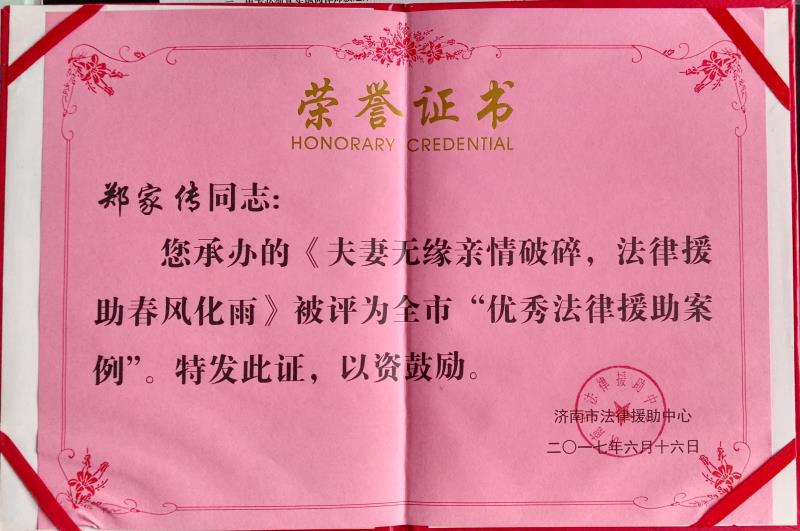 荣誉证书
HONORARY CREDENTIAL
郑家传同志:
您承办的《夫妻无缘亲情破碎，法律援
助春风化雨》被评为全市“优秀法律援助案
例”。特发此证，以资鼓励。
济南市法律援助中心
二〇一七年六月十六日